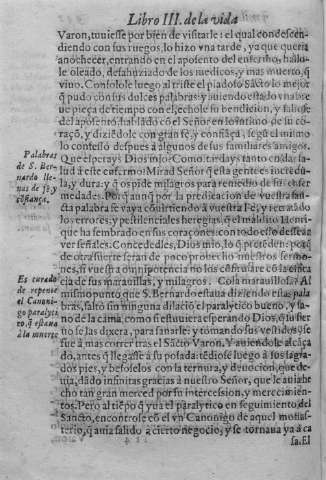 Libro III. de la vida
Varon, tuuiesse por bien de visitarle: el qual condescen-
diendo con sus ruegos, lo hizo vna tarde, ya que queria
anochecer, entrando en el aposento del enfermo, hallo-
le oleado, defahuziado de los medicos, y mas muerto, q̃
viuo. Consolole luego al triste el piadoso Sãcto lo mejor
q̃ pudo cõ sus dulces palabras: y auiendo estado vna bre
ue pieça de tiempo con el, echole su bendicion, y saliose
del aposento hablãdo cõ el Señor en lo intimo de su co-
raçõ, y diziẽdole con gran fe, y confiãça, segũ el mismo
lo confesso despues a algunos de sus familiares amigos.
Palabras
de S. Ber-
nardo lle-
nas de fe, y
cõfiança.
Que esperays Dios mio? Como tardays tanto en dar la
salud à este enfermo? Mirad Señor q̃ esta gente es incredu
la, y dura: y q̃ os pide milagros para remedio de sus enfer
medades. Porq̃ aunq̃ por la predicacion de vuestra san-
cta palabra se vaya cõuirtiendo à vuestra Fè, y renũciãdo
los errores, y pestilenciales heregias, q̃ el maldito Henri-
que ha sembrado en sus coraçones: con todo esso dessean
ver señales. Concededles, Dios mio, lo q̃ pretẽden: porq̃
de otra suerte serà de poco prouecho nuestros sermo-
nes, si vuestra omnipotencia no los cõfirmare cõ la efica
cia de sus marauillas, y milagros. Cosa marauillosa! Al
Es curado
de repente
el Canoni-
go paralyti
co, q̃ estaua
à la muerte
mismo punto que S. Bernardo estaua diziendo estas pala
bras, saltò sin ninguna dilaciõ el paralytico bueno, y sa-
no de la cama, como si estuuiera esperando Dios, q̃ su sier
uo se las dixera, para sanarle: y tomando sus vestidos, se
fue à mas correr tras el Sãcto Varon. Y auiendole alcãça
do, antes q̃ llegasse à su posada: tẽdiose luego à sus sagra-
dos pies, y besoselos con la ternura, y deuocion, que de-
uia, dãdo infinitas gracias à nuestro Señor, que le auia he
cho tan gran merced por su intercession, y merecimien-
tos. Pero al tiẽpo q̃ yua el paralytico en seguimiento del
Sancto, encontrose cõ el vn Canonigo de aquel monas-
terio, q̃ auia salido à cierto negocio, y se tornaua ya à ca
sa. El